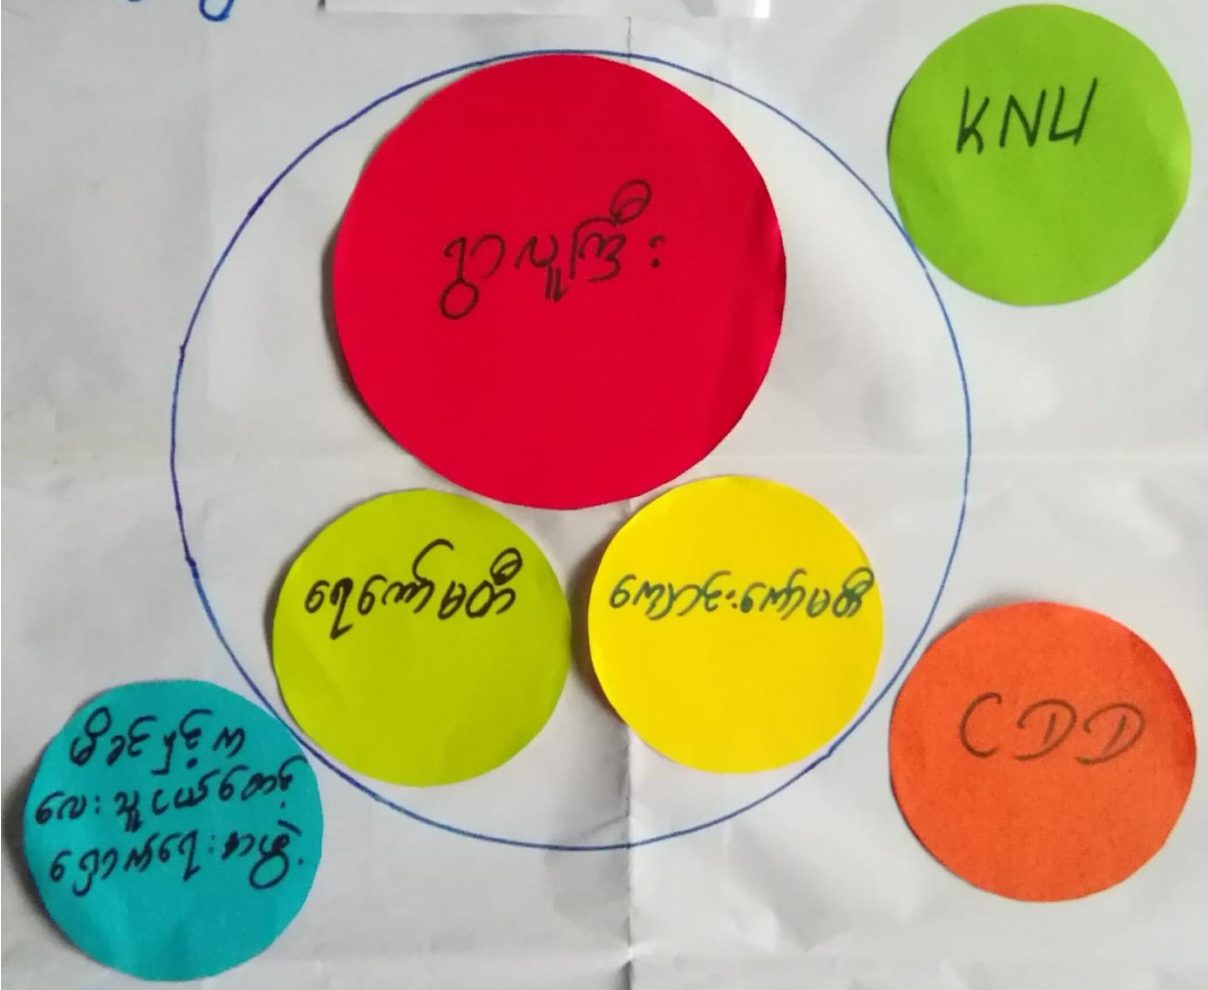 ရွာလူကြီး
KNU
ရေကော်မတီ
ကျောင်းကော်မတီ
CDD
မိခင်နှင့်က
လေးသူငယ်စောင့်
ရှောက်ရေးအဖွဲ့